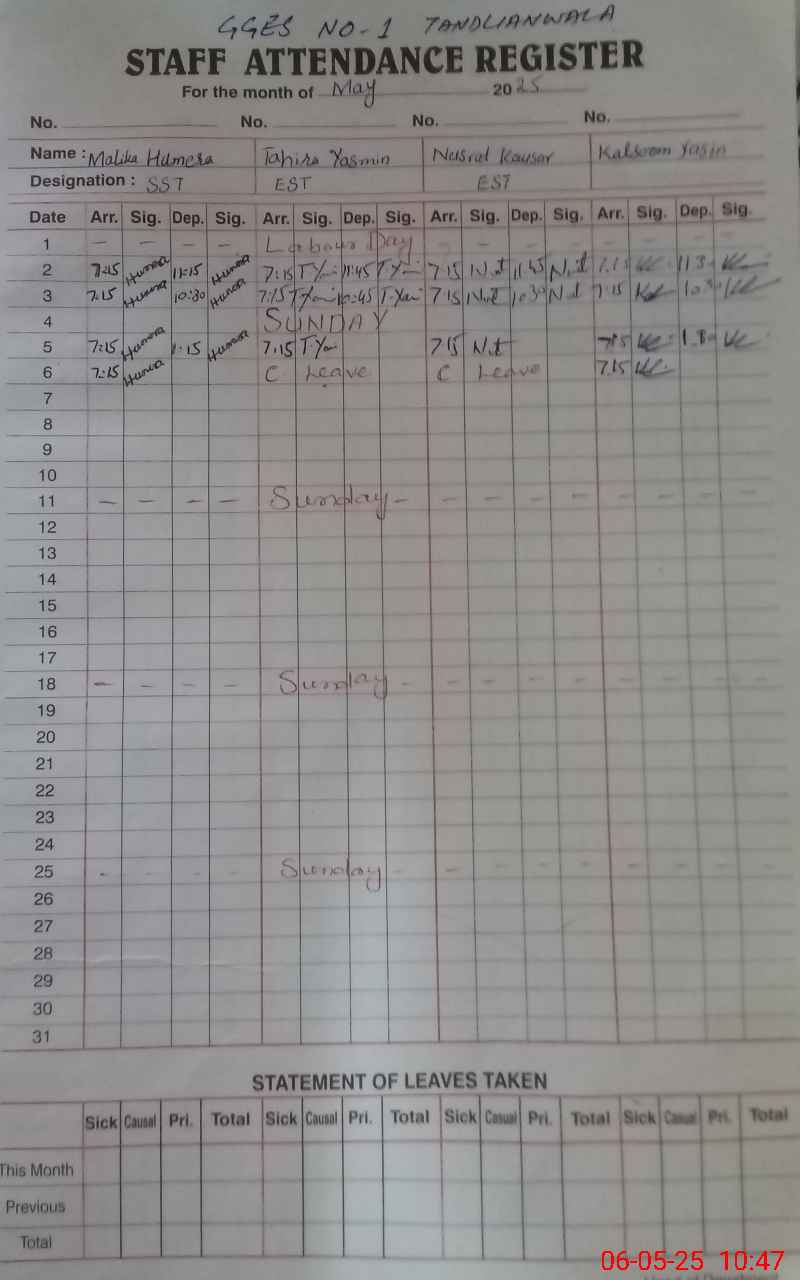 GGES NO-1 TANDLIANWALA
STAFF ATTENDANCE REGISTER
For the month of May 2025
No. No. No. No.
Name : Malika Humera Tahira Yasmin Nusrat Kausar Kalsoom Yasin
Designation : SST EST EST
Date Arr. Sig. Dep. Sig. Arr. Sig. Dep. Sig. Arr. Sig. Dep. Sig. Arr. Sig. Dep. Sig.
1 - - - Labour Day - - - - - - -
2 7:15 Humera 11:15 Humera 7:15 T.Yas 11:45 T.Yas 7:15 N.t 11.45 N.t 7.15 11.3
3 7:15 Humera 10:30 Humera 7:15 T.Yas 10:45 T.Yas 7:15 N.t 10.30 N.t 7:15 10.3
4 SUNDAY
5 7:15 Humera 1:15 Humera 7:15 T.Ya 7:15 N.t 7:15
6 7:15 Humera C Leave C Leave 7.15
7
8
9
10
11 - - - - Sunday - - - - - - - - -
12
13
14
15
16
17
18 - - - - Sunday - - - - - - - - -
19
20
21
22
23
24
25 - - - - Sunday - - - - - - - - -
26
27
28
29
30
31
STATEMENT OF LEAVES TAKEN
Sick Causal Pri. Total Sick Causal Pri. Total Sick Casual Pri. Total Sick Casual Pri. Total
This Month
Previous
Total
06-05-25 10:47